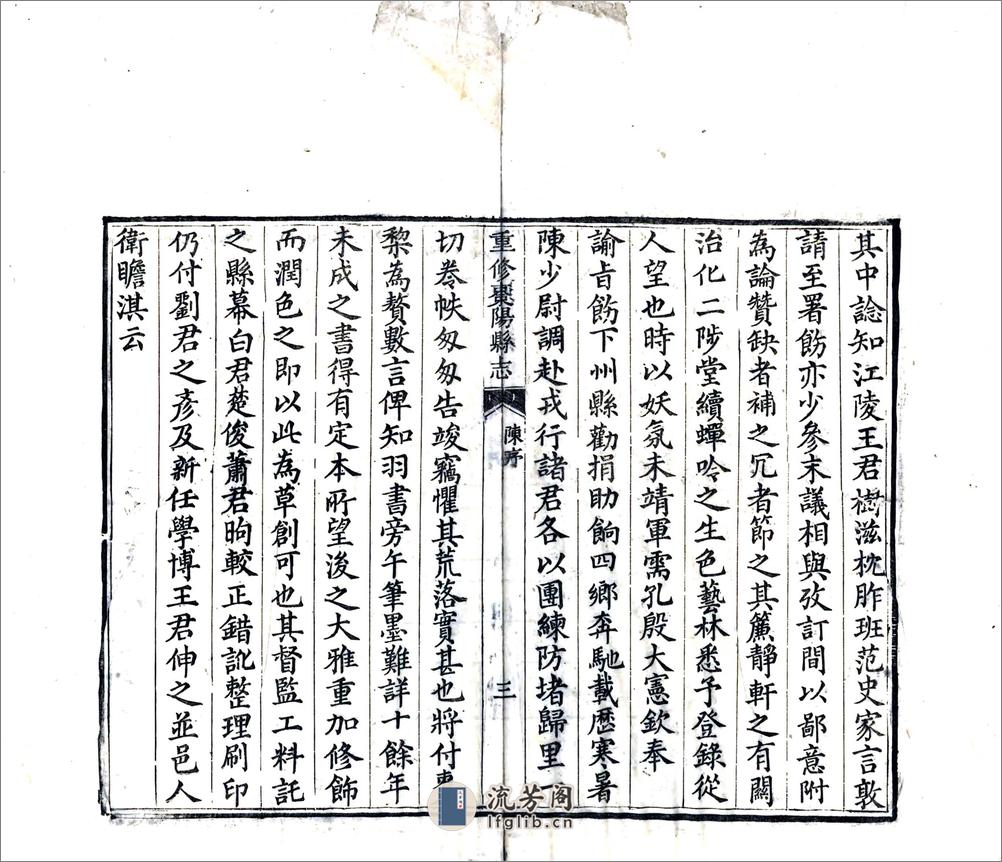 其中諗知江陵王君樹滋枕胙班范史家言敦
請至署飭亦少參末議相與攷訂間以鄙意附
為論贊缺者補之冗者節之其簾靜軒之有關
治化二陟堂續蟬吟之生色藝林悉予登錄從
人望也時以妖氛未靖軍需孔殷大憲欽奉
諭旨飭下州縣勸捐助餉四鄉奔馳載歷寒暑
陳少尉調赴戎行諸君各以團練防堵歸里
重修棗陽縣志
陳序
三
切卷帙匆匆告竣竊懼其荒落實甚也將付
黎為贅數言俾知羽書旁午筆墨難詳十餘年
未成之書得有定本所望後之大雅重加修飾
而潤色之即以此為草創可也其督監工料託
之縣幕白君楚俊蕭君昫較正錯訛整理刷印
仍付劉君之彥及新任學博王君伸之並邑人
衛瞻淇云
流芳阁
lfglib.cn